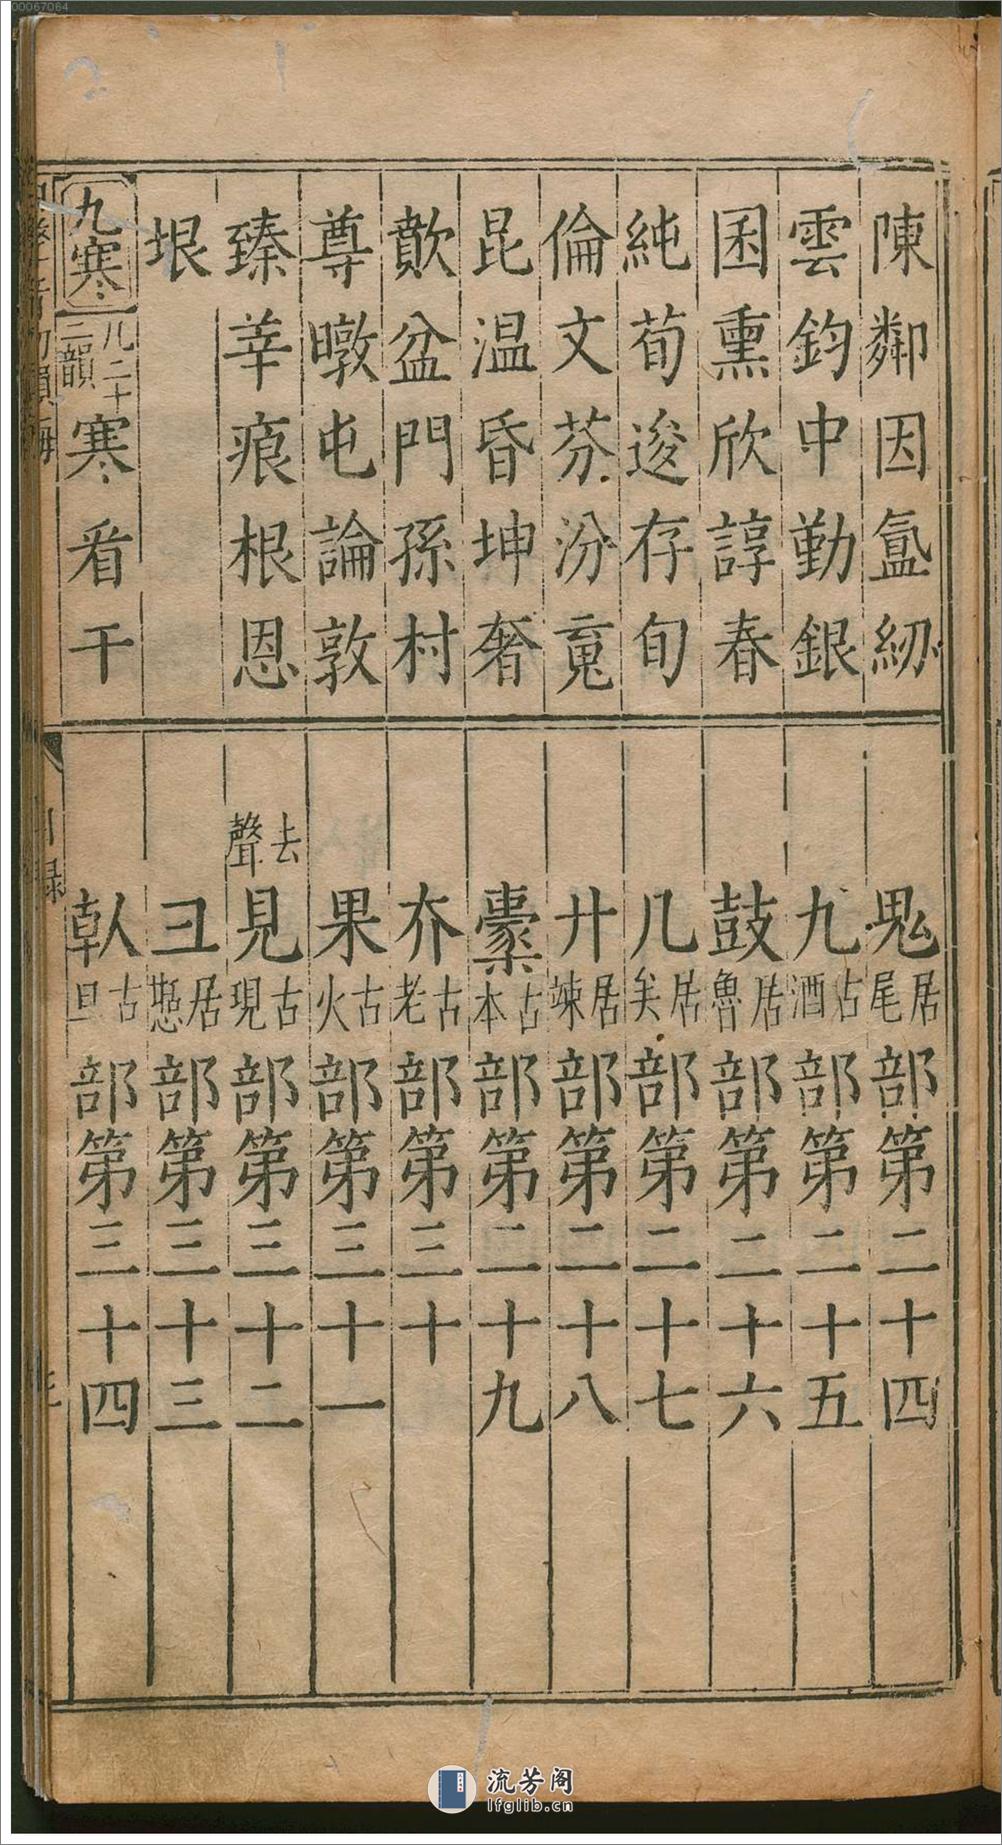 00067064
陳鄰因氳紉
雲鈞申勤銀
困熏欣諄春
純荀逡存旬
倫文芬汾
昆温昏坤奢
歕盆門孫村
尊暾屯論敦
臻莘痕根恩
垠
九寒 凡二十二韻 寒看干
居尾部第二十四
九古酒部第二十五
鼓居魯部第二十六
几居矣部第二十七
廾居竦部第二十八
橐古本部第二十九
夰古老部第三十
果古火部第三十一
去聲
見古現部第三十二
彑居部第三十三
倝古旦部第三十四
目錄
流芳阁
lfglib.cn